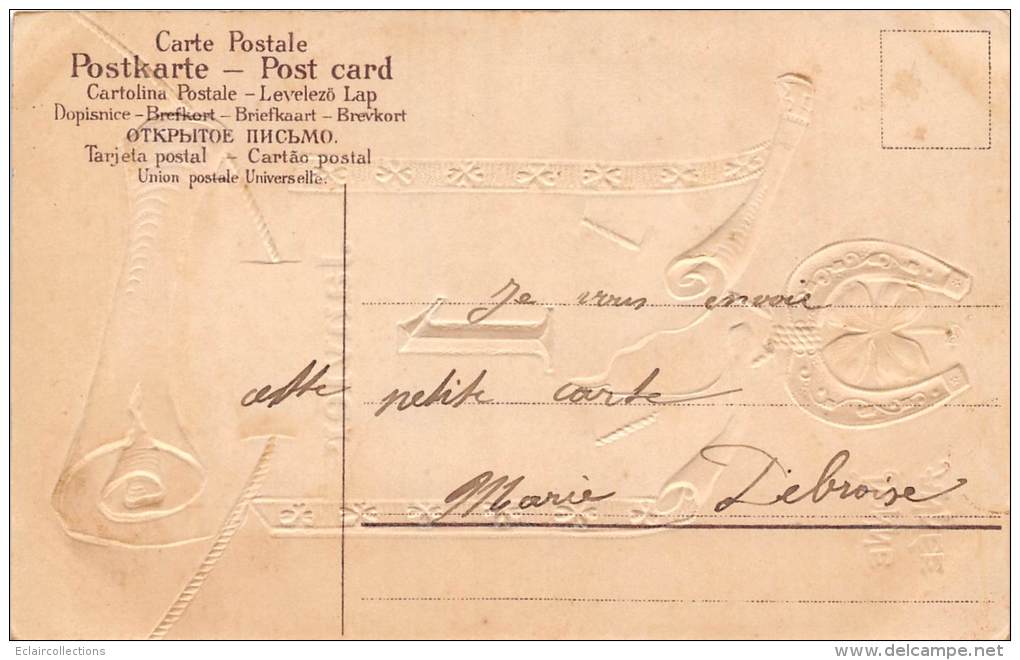 Carte Postale
Postkarte – Post card
Cartolina Postale – Levelező Lap
Dopisnice – Brefkort – Briefkaart – Brevkort
ОТКРЫТОЕ ПИСЬМО.
Tarjeta postal – Cartão postal
Union postale Universelle.
Je vous envoie
cette petite carte
Marie Debroise
1
Eclaircollections
www.delcampe.net